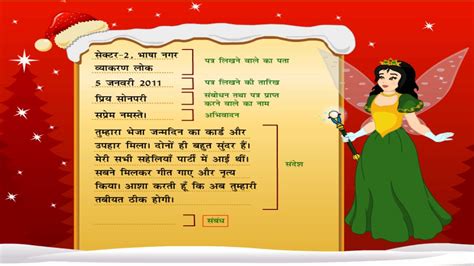 सेक्टर-2, भाषा नगर
व्याकरण लोक
पत्र लिखने वाले का पता
5 जनवरी 2011
पत्र लिखने की तारिख
प्रिय सोनपरी
संबोधन तथा पत्र प्राप्त
करने वाले का नाम
सप्रेम नमस्ते।
अभिवादन
तुम्हारा भेजा जन्मदिन का कार्ड और
उपहार मिला। दोनों ही बहुत सुंदर हैं।
मेरी सभी सहेलियाँ पार्टी में आई थीं।
सबने मिलकर गीत गाए और नृत्य
किया। आशा करती हूँ कि अब तुम्हारी
तबीयत ठीक होगी।
संदेश
संबंध